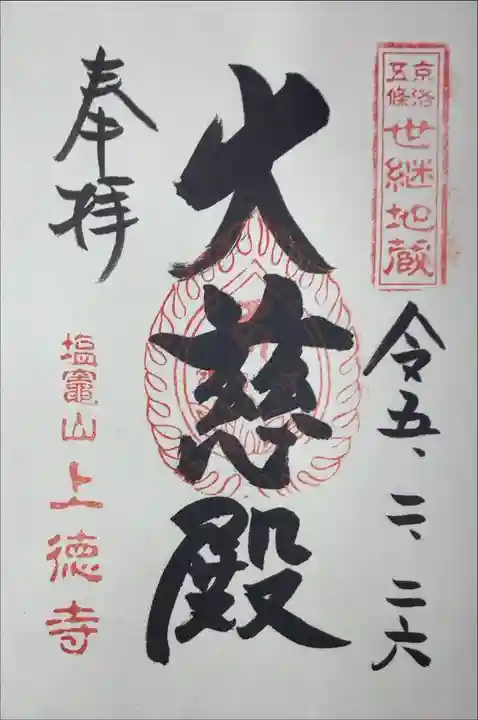 京洛五條 世継地蔵
令五、二、二六
大慈殿
奉拝
塩竈山 上徳寺